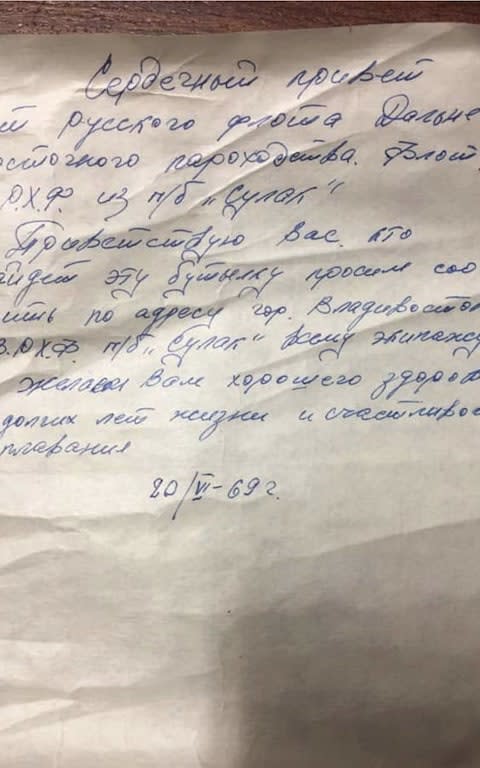 Сердечный привет
т русского флота Дальне
осточного пароходства. Флот
.О.Х.Ф. из п/б „Сулак"
Приветствую Вас. кто
айдет эту бутылку просим соо
ить по адресу гор. Владивосток
В.О.Х.Ф. п/б „Сулак" всему экипажу
желаем Вам хорошего здоров
долгих лет жизни и счастливо
плавания
20/VI-69 г.